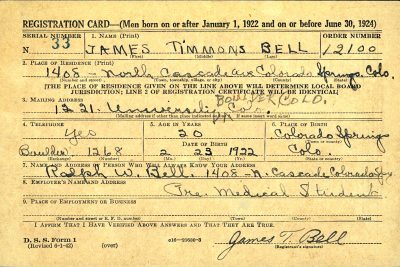 REGISTRATION CARD—(Men born on or after January 1, 1922 and on or before June 30, 1924)
SERIAL NUMBER 1. NAME (Print) ORDER NUMBER
N 33 JAMES TIMMONS BELL 12100
(First) (Middle) (Last)
2. PLACE OF RESIDENCE (Print)
1408 - North Cascade ave Colorado Springs, Colo.
(Number and street) (Town, township, village, or city) (County) (State)
[THE PLACE OF RESIDENCE GIVEN ON THE LINE ABOVE WILL DETERMINE LOCAL BOARD
JURISDICTION; LINE 2 OF REGISTRATION CERTIFICATE WILL BE IDENTICAL]
3. MAILING ADDRESS BOULDER COLO.
1221 University
(Mailing address if other than place indicated on line 2. If same insert word same)
4. TELEPHONE 5. AGE IN YEARS 6. PLACE OF BIRTH
Yes 20 Colorado Springs
DATE OF BIRTH
Boulder 1268 2 23 1922 Colo.
(Exchange) (Number) (Mo.) (Day) (Yr.) (State or country)
7. NAME AND ADDRESS OF PERSON WHO WILL ALWAYS KNOW YOUR ADDRESS
Ralph W. Bell. 1408 - N. Cascade, Colorado
8. EMPLOYER'S NAME AND ADDRESS
Pre. Medical Student
9. PLACE OF EMPLOYMENT OR BUSINESS
(Number and street or R. F. D. number) (Town) (County) (State)
I AFFIRM THAT I HAVE VERIFIED ABOVE ANSWERS AND THAT THEY ARE TRUE.
D. S. S. Form 1
(Revised 6-1-42) (over) James T. Bell
(Registrant's signature)